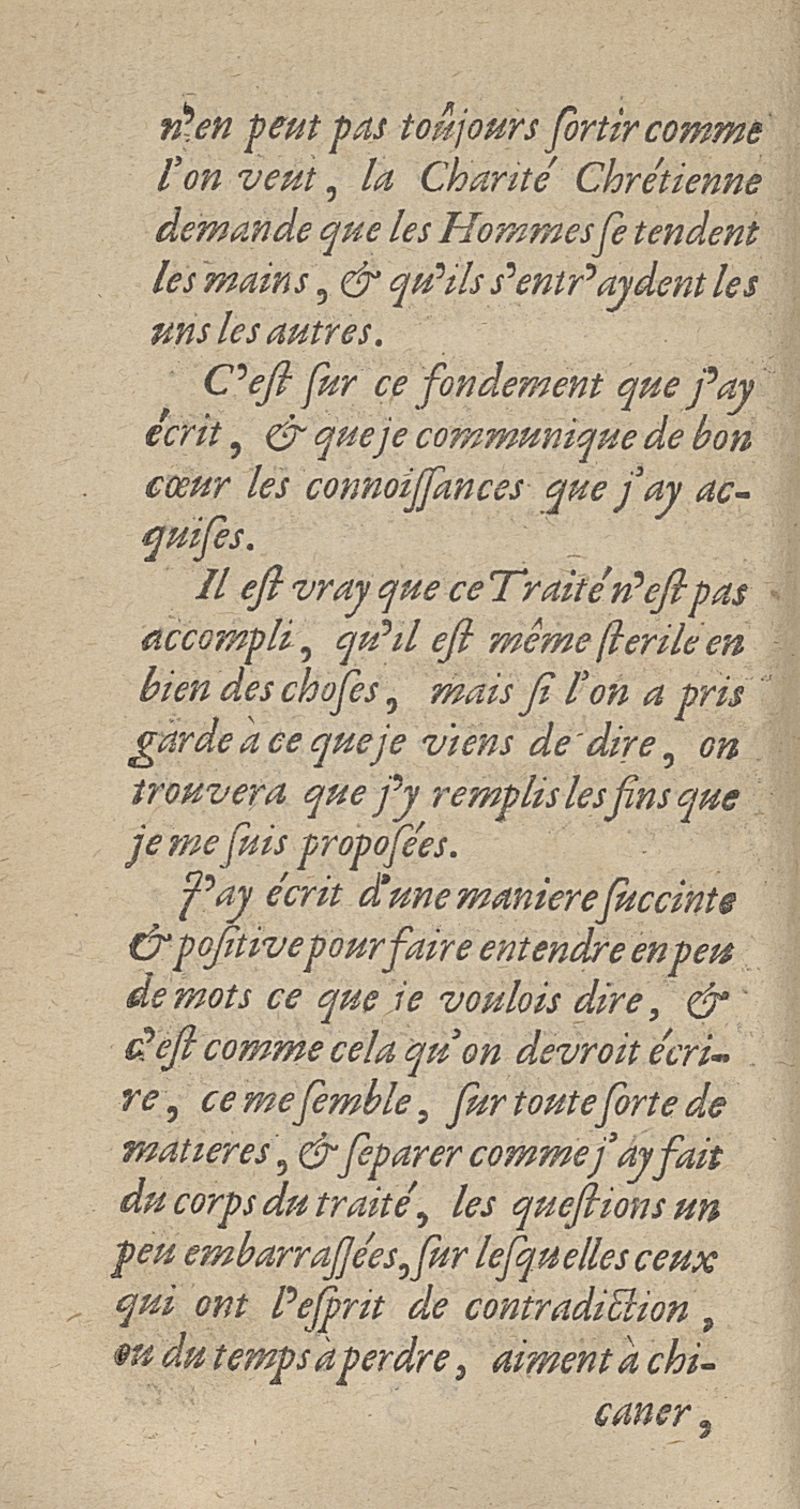 n'en peut pas toûjours ſortir comme
l'on veut, la Charité Chrétienne
demande que les Hommes ſe tendent
les mains, & qu'ils s'entr'aydent les
uns les autres.
C'eſt ſur ce fondement que j'ay
écrit, & que je communique de bon
cœur les connoiſſances que j'ay ac-
quiſes.
Il eſt vray que ce Traité n'eſt pas
accompli, qu'il eſt même ſterile en
bien des choſes, mais ſi l'on a pris
garde à ce que je viens de dire, on
trouvera que j'y remplis les fins que
je me ſuis propoſées.
J'ay écrit d'une maniere ſuccinte
& poſitive pour faire entendre en peu
de mots ce que je voulois dire, &
c'eſt comme cela qu'on devroit écri-
re, ce me ſemble, ſur toute ſorte de
matieres, & ſeparer comme j'ay fait
du corps du traité, les queſtions un
peu embarraſſées, ſur leſquelles ceux
qui ont l'eſprit de contradiction,
ou du temps à perdre, aiment à chi-
caner,